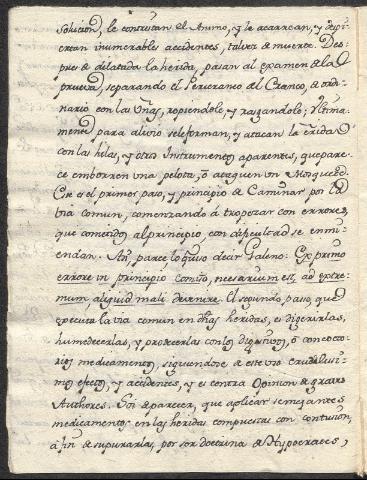 solucion, le contristan el Animo, y le acarrean, y despi-
ertan inumerables accidentes, talvez de muerte. Des-
pues de dilatada la herida, pasan al examen de la
prueva, separando el Pericraneo del Craneo, de ordi-
nario con las Uñas, ropiendole, y rasgandole; Ultima-
mente para alivio se le forman, y atacan la erida
con las hilas, y otros Instrumentos aparentes, que pare-
ce emborren una pelota, o ataquen un Mosquete.
Ese es el primer paso, y principio de Caminar por la
via comun, comenzando á tropezar con errores,
que cometidos al principio, con dificultad se enmi-
endan. Asi parece lo quiso decir Galeno: Ex primo
errore in principio comiso, necesarium est, ad extre-
mum aliquid mali devenire. El segundo paso que
executa la via comun en dhas heridas, es digerirlas,
humedecerlas, y protecerlas con los digestivos, o concoc-
rios medicamentos, siguiendose de este vso crudelisi-
mos efectos, y accidentes, y es contra Opinion de graves
Authores. Soi de parecer, que aplicar semejantes
medicamentos en las heridas compuestas con contusion,
á fin de supurarlas, por ser doctrina de Hypocrates,